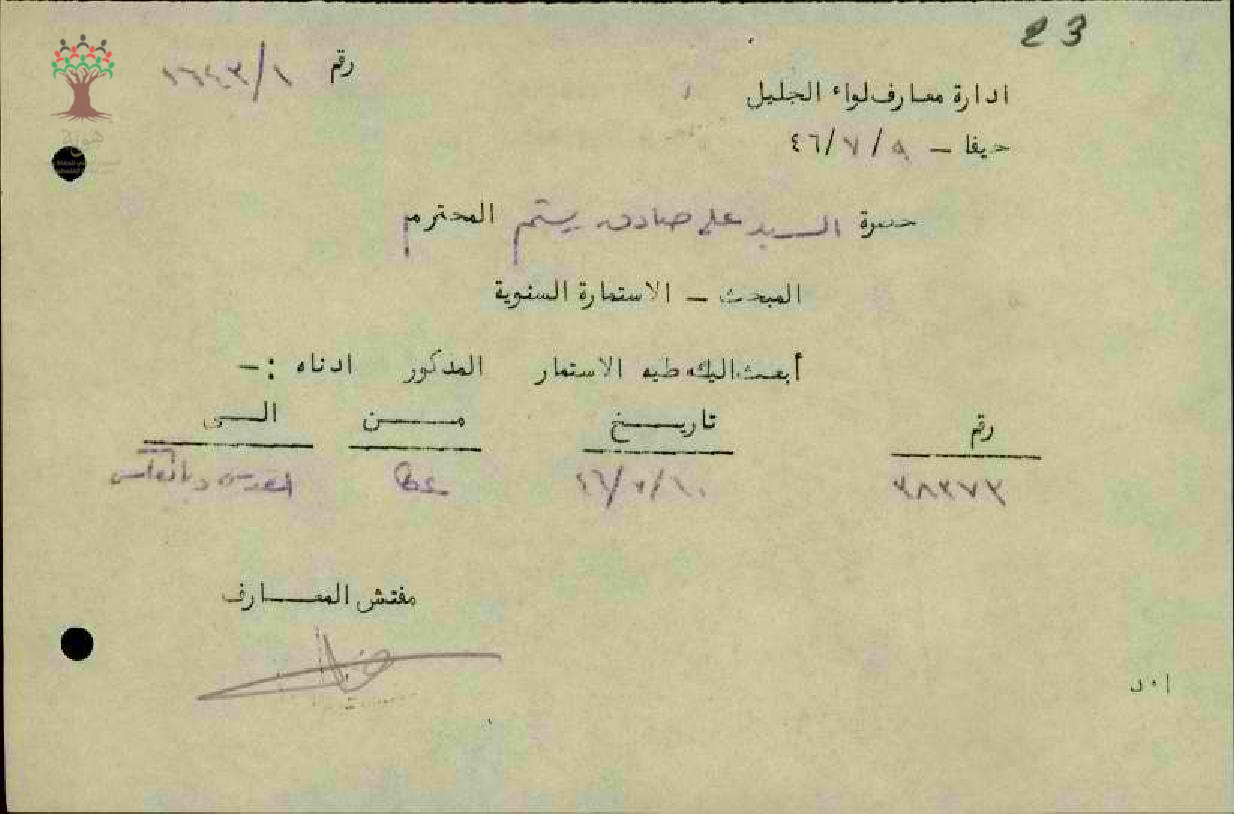 23
رقم ١٦٤٣/١
ادارة معارف لواء الجليل
حيفا - ٩ /٧ /٤٦
حضرة السيد علي صادق يستم المحترم
المبحث - الاستمارة السنوية
أبعث اليك طيه الاستمار المذكور ادناه :-
رقم تاريخ من الى
٣٨٢٧٣ عكا القدس
مفتش المعارف
هوية